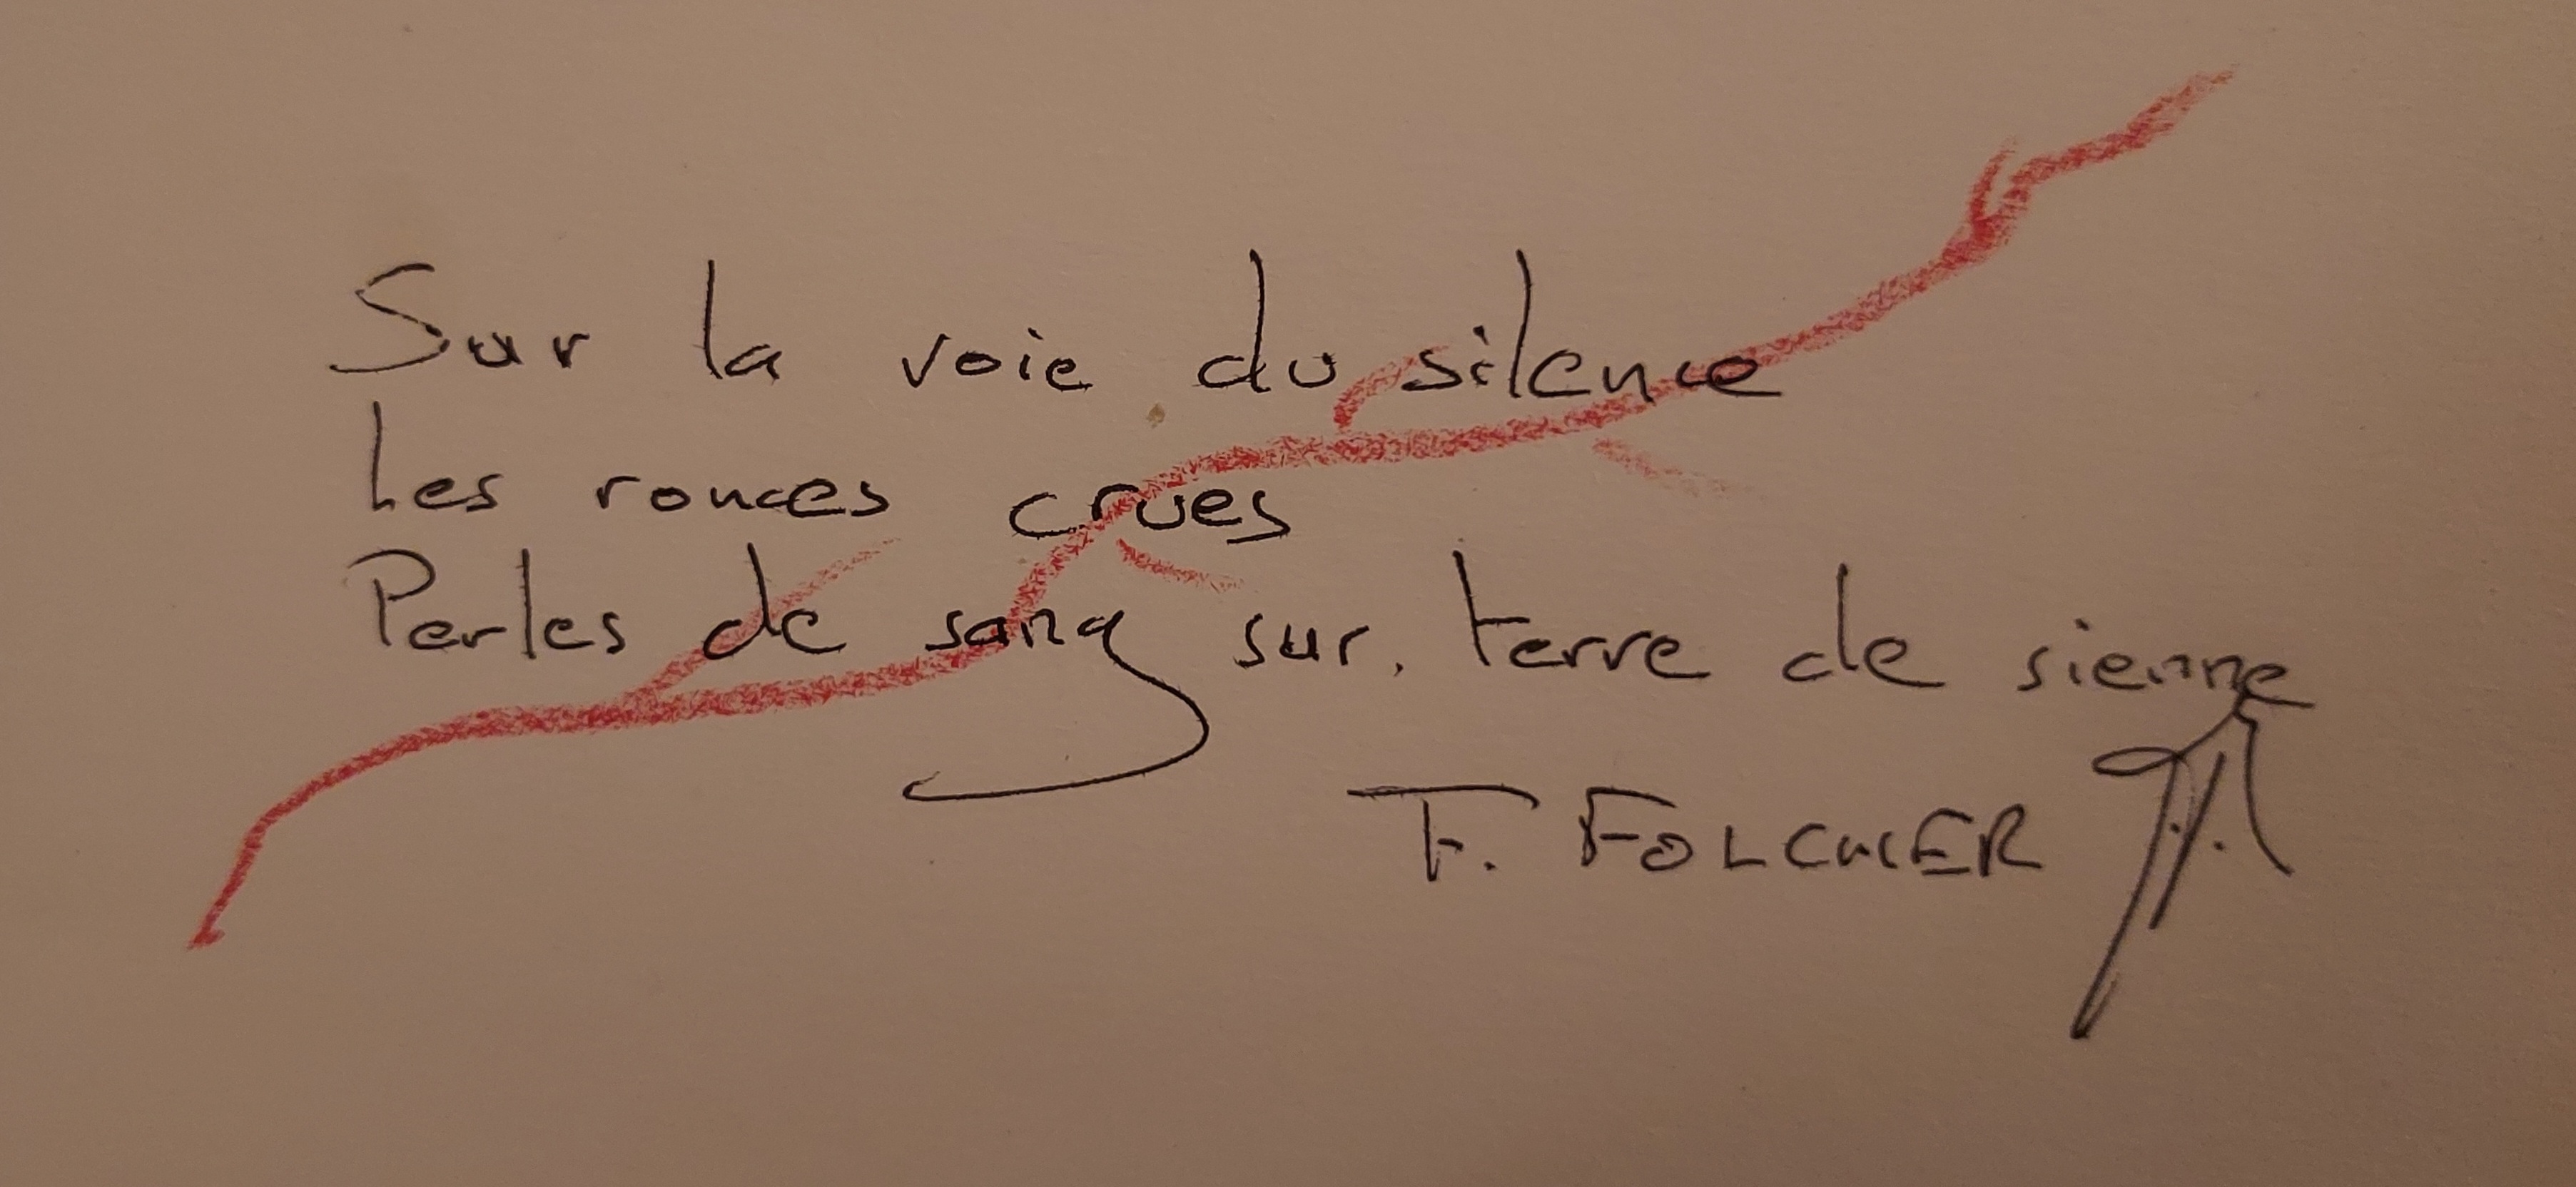 Sur la voie du silence
Les ronces crues
Perles de sang sur. terre de sienne
F. FOLCHER